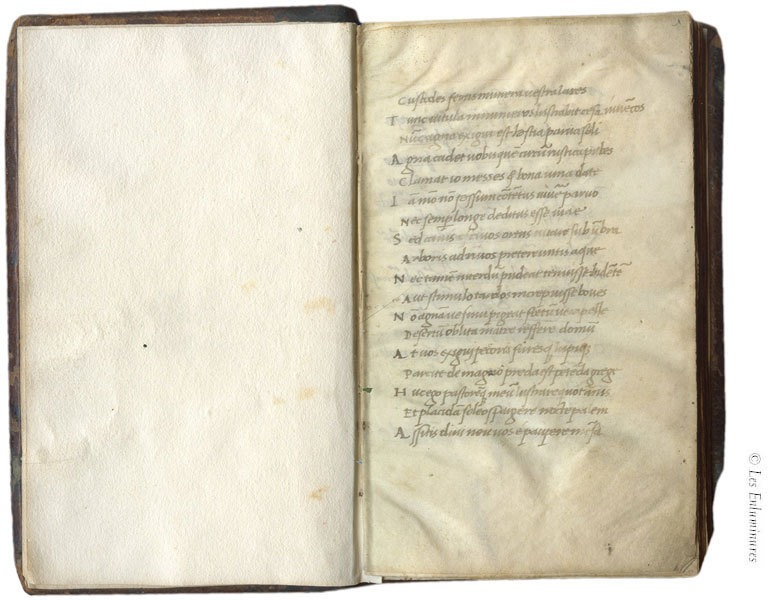 Custodes fertis munera uestra lares
T unc uitula innumeros lustrabat cesa iuuēcos
Nūc agna exigui est hostia parua soli
A gna cadet uobis quē circū rustica pubes
Clamat io messes & bona uina date
I ā mō nō possum cōtētus uiuē paruo
Nec semp longe deditus esse uiae
S ed canis estiuos ortus uitare sub ūbra
Arboris ad riuos pretereuntis aque
N ec tamē interdū pudeat tenuisse bidētē
Aut stimulo tardos increpuisse boues
N ō agnāue sinu pigeat fetūue capelle
Desertū oblita matre referre domū
A t uos exiguo pecori furesq lupiq
Parcite de magno preda est petēda grege
H ic ego pastoreq meū lustrare quotānis
Et placidā soleo spargere lacte palem
A ssitis diui neu uos e paupere mēsa
© Les Enluminures